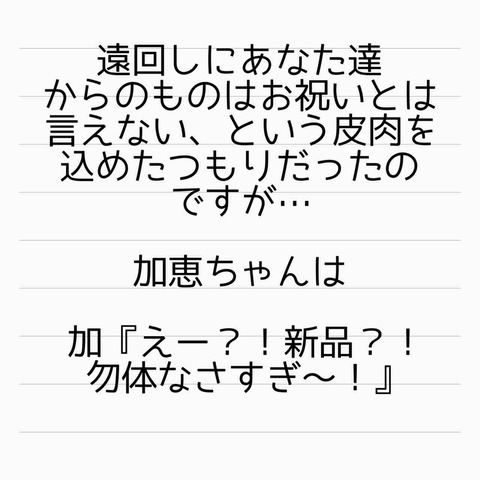 遠回しにあなた達
からのものはお祝いとは
言えない、という皮肉を
込めたつもりだったの
ですが…
加恵ちゃんは
加『えー？！新品？！
勿体なさすぎ〜！』